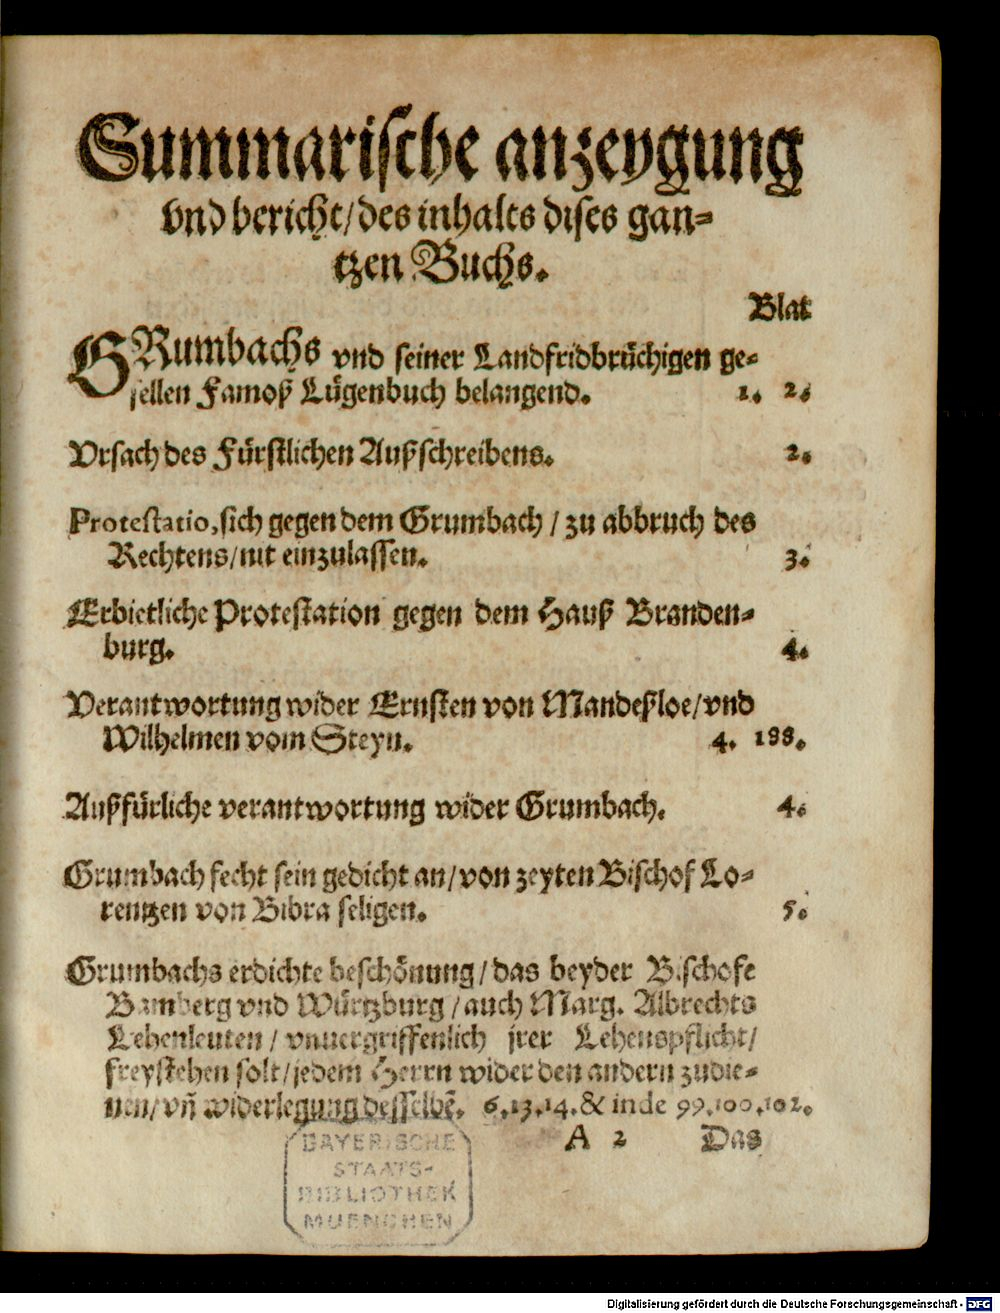 Summarische anzeygung
vnd bericht/des inhalts dises gan⸗
tzen Buchs.
Blat
GRumbachs vnd seiner Landfridbrüchigen ge⸗
sellen Famoß Lügenbuch belangend. 1. 2.
Vrsach des Fürstlichen Außschreibens. 2.
Protestatio, sich gegen dem Grumbach / zu abbruch des
Rechtens/nit einzulassen. 3.
Erbietliche Protestation gegen dem Hauß Branden⸗
burg. 4.
Verantwortung wider Ernsten von Mandeßloe/vnd
Wilhelmen vom Steyn. 4. 188.
Außfürliche verantwortung wider Grumbach. 4.
Grumbach fecht sein gedicht an/von zeyten Bischof Lo⸗
rentzen von Bibra seligen. 5.
Grumbachs erdichte beschönung/das beyder Bischofe
Bamberg vnd Würtzburg/auch Marg. Albrechts
Lehenleuten / vnuergriffenlich jrer Lehenspflicht/
freystehen solt/jedem Herrn wider den andern zudie⸗
nen/vñ widerlegung desselbẽ. 6.13.14.& inde 99.100.102.
A 2 Das
BAYERISCHE
STAATS-
BIBLIOTHEK
MUENCHEN
Digitalisierung gefördert durch die Deutsche Forschungsgemeinschaft - DFG